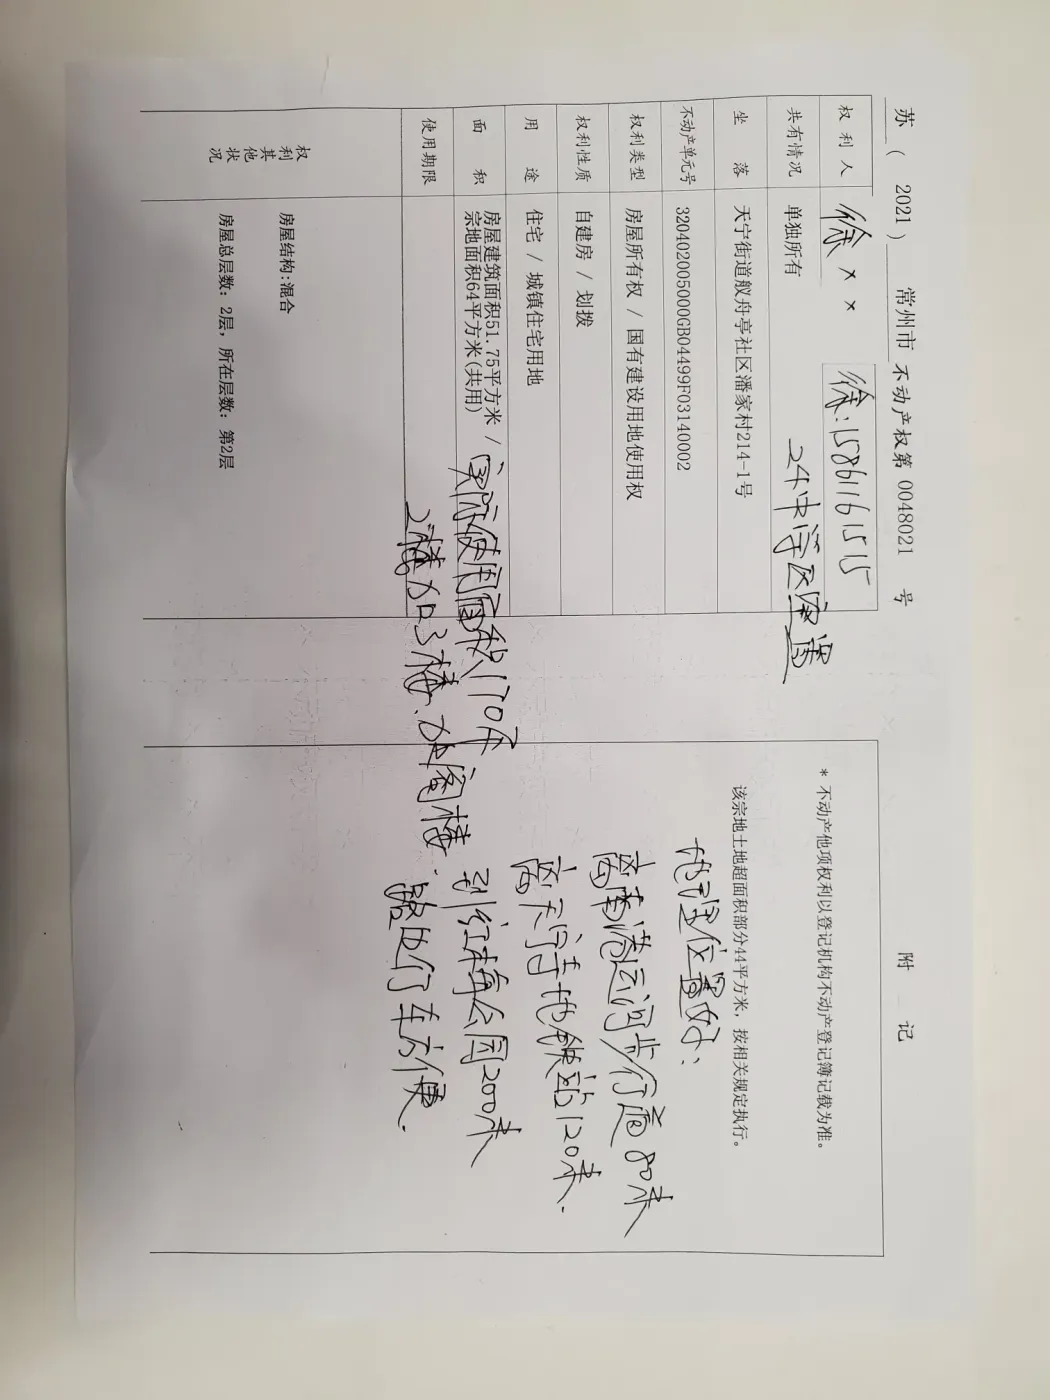 苏 ( 2021 ) 常州市 不动产权第 0048021 号
权利人 徐 × × 徐:15861161515
共有情况 单独所有 24中学区空置
坐落 天宁街道舣舟亭社区潘家村214-1号
不动产单元号 320402005000GB04499F03140002
权利类型 房屋所有权 / 国有建设用地使用权
权利性质 自建房 / 划拨
用途 住宅 / 城镇住宅用地
面积 房屋建筑面积51.75平方米 /
宗地面积64平方米(共用)
实际使用面积170平
使用期限
2楼加3楼、加阁楼.
权利其他状况
房屋结构:混合
房屋总层数: 2层, 所在层数: 第2层
附 记
* 不动产他项权利以登记机构不动产登记簿记载为准。
该宗地土地超面积部分44平方米, 按相关规定执行。
地理位置好:
离南港运河步行道80米
离天宁寺地铁站120米.
到红梅公园200米
门车方便.